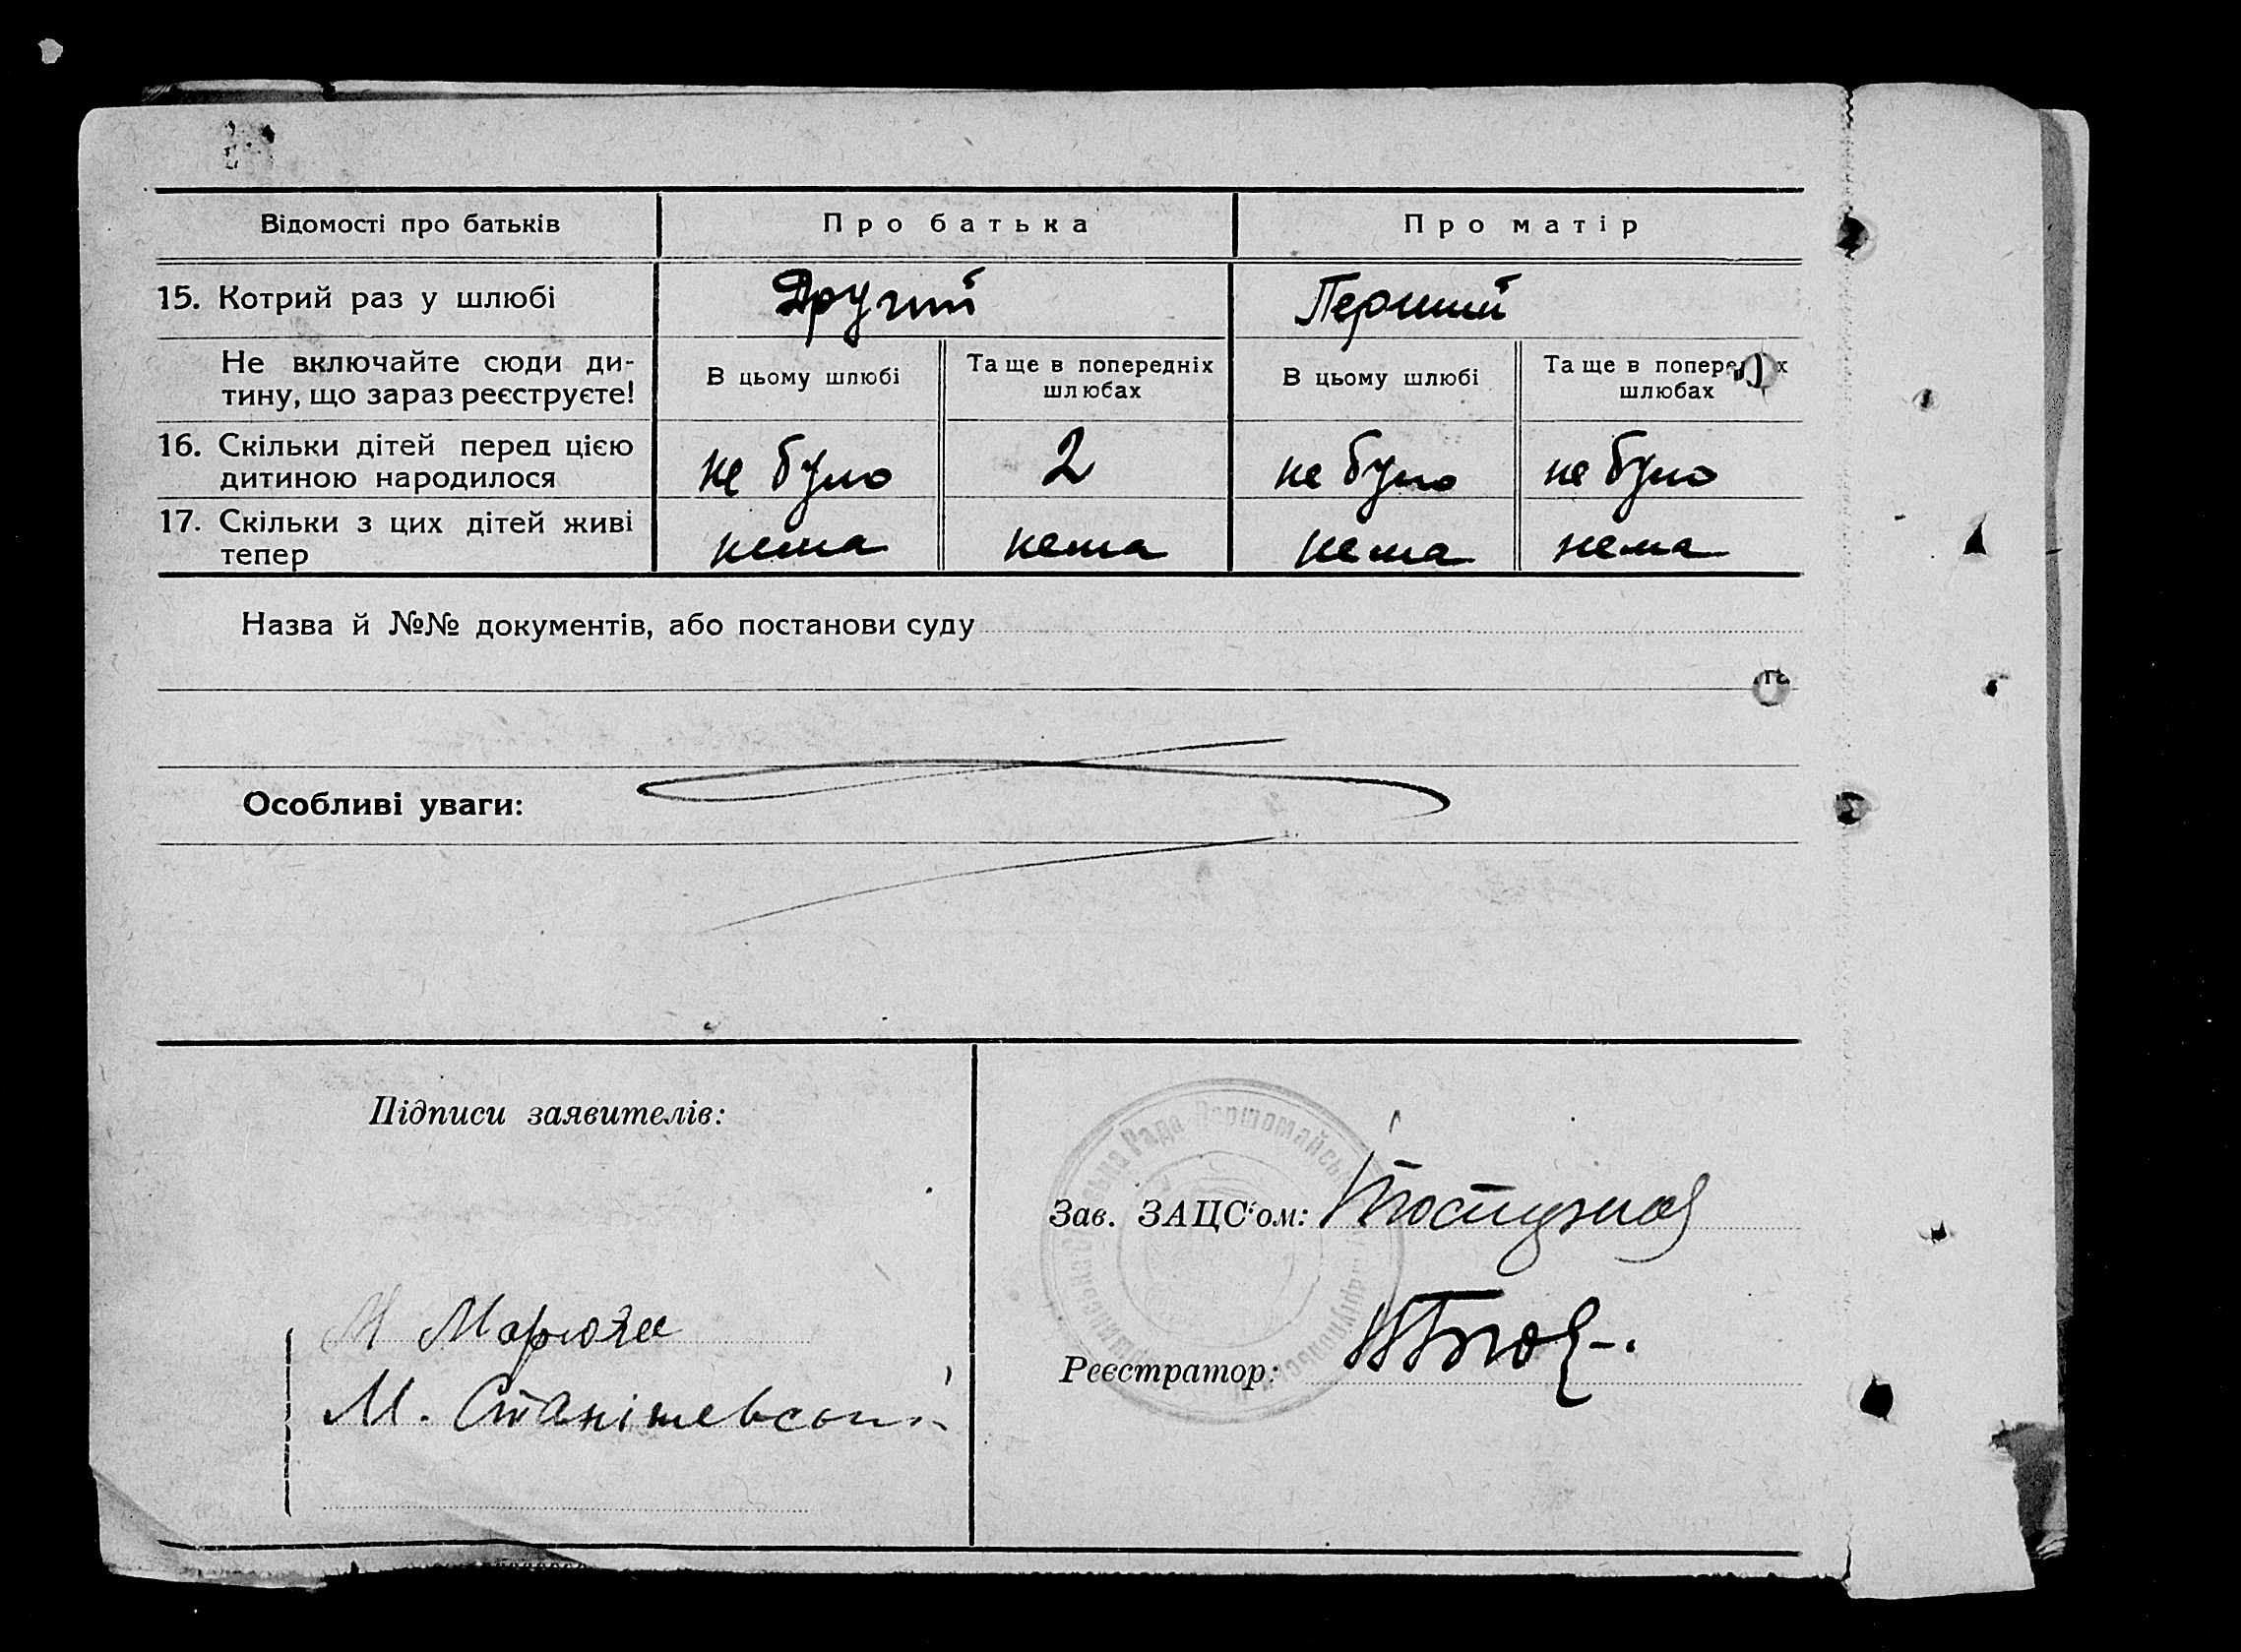 Відомості про батьків
Про батька
Про матір
15. Котрий раз у шлюбі
Другий
Перший
Не включайте сюди ди-
тину, що зараз реєструєте!
В цьому шлюбі
Та ще в попередніх
шлюбах
В цьому шлюбі
Та ще в попередніх
шлюбах
16. Скільки дітей перед цією
дитиною народилося
не було
2
не було
не було
17. Скільки з цих дітей живі
тепер
нема
нема
нема
нема
Назва й №№ документів, або постанови суду
Особливі уваги:
Підписи заявителів:
М. Станішевський
Рада Першотравнева
Зав. ЗАЦС'ом:
Реєстратор: